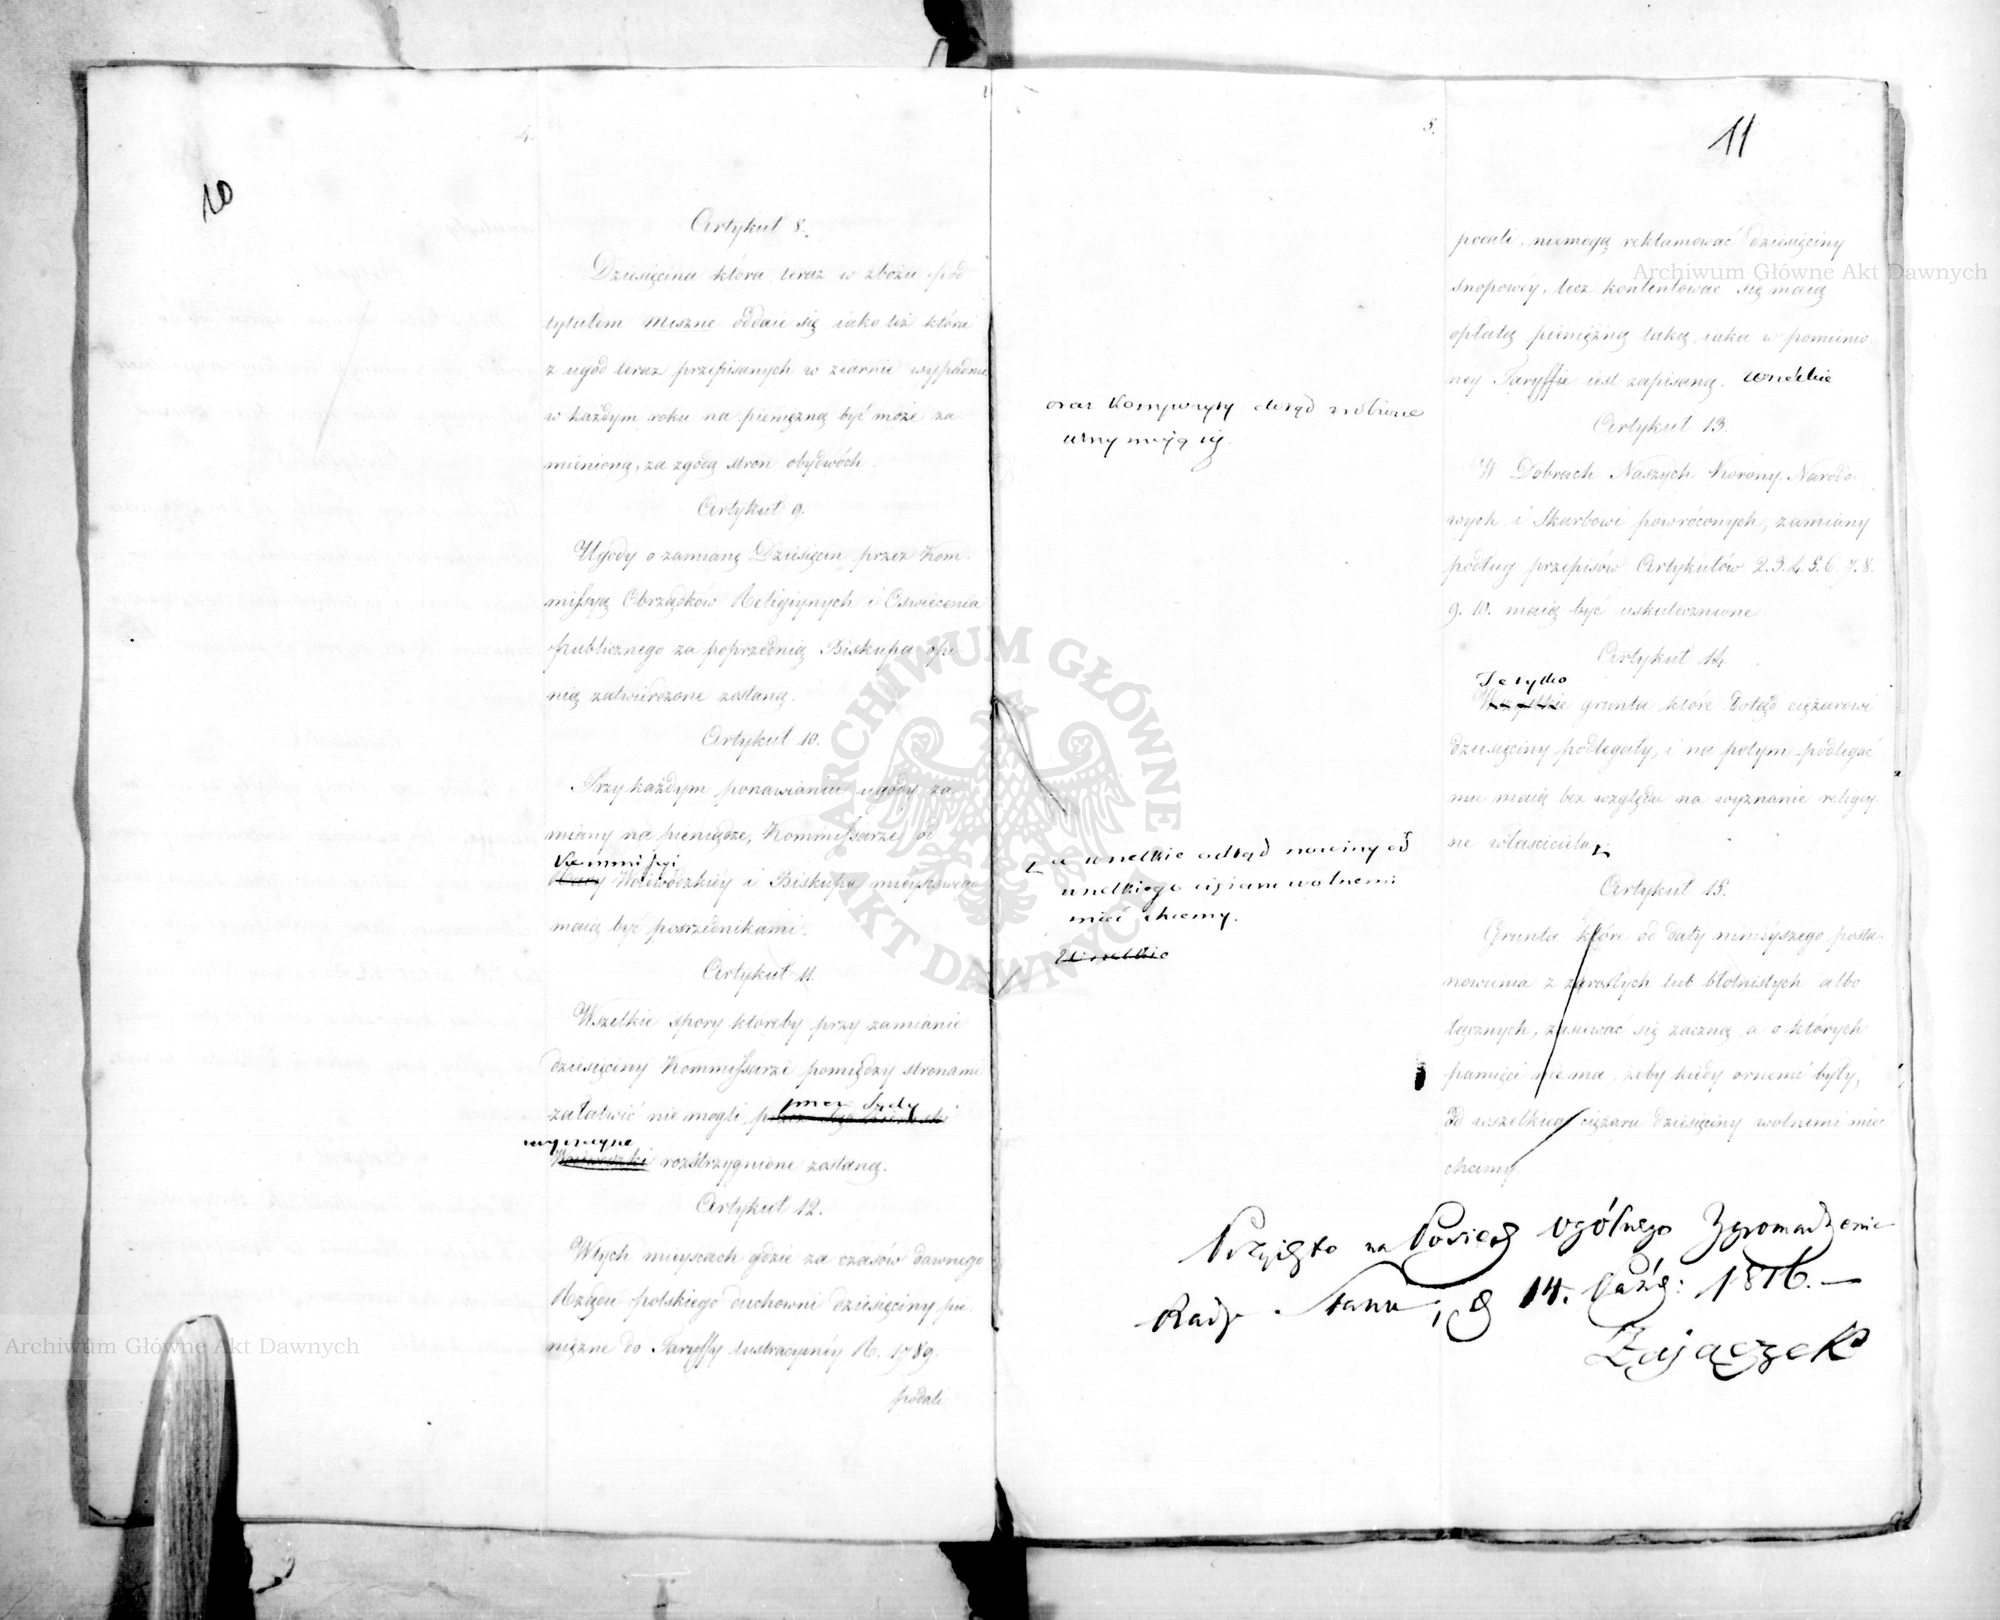 4.
10
Artykuł 8.
Dziesięcina która teraz w zbożu pod
tytułem meszne oddaie się, iako też która
z ugód teraz przepisanych w ziarnie wypadnie
w każdym roku na pieniężną być może za-
mienioną, za zgodą stron obydwóch.
Artykuł 9.
Ugody o zamianę Dziesięcin przez Kom-
missyą Obrządkow Religiynych i Oswiecenia
publicznego za poprzednią Biskupa opi-
nią zatwierdzone zostaną.
Artykuł 10.
Przy każdym ponawianiu ugody za-
miany na pieniądze, Kommissarze od
Kommissyi
Rady Woiewódzkiéy i Biskupa mieyscowego
maią być posrzednikami.
Artykuł 11.
Wszelkie spory któreby przy zamianie
dziesięciny Kommissarze pomiędzy stronami
załatwić nie mogli, przez Sąd
przez Sądy
Woiewodzki rozstrzygnione zostaną.
Artykuł 12.
Wtych mieyscach gdzie za czasów dawnego
Rządu polskiego duchowni dziesięciny pie-
niężne do Taryffy lustracyinéy R. 1789.
podali
5.
11
podali, niemogą reklamować dziesięciny
snopowéy, lecz kontentować się maią
opłatą pieniężną taką, iaka w pomienio-
ney Taryffie iest zapisaną. wszelkie
oraz Kompozyty dotąd zrobione
Artykuł 13.
W Dobrach Naszych Korony, Narodo-
wych i Skarbowi powróconych, zamiany
podług przepisów Artykułów 2. 3. 4. 5. 6. 7. 8.
9. 10. maią być uskutecznione.
Artykuł 14.
Te tylko
Wszystkie grunta które dotąd ciężarowi
dziesięciny podlegały, i na potym podlegać
mu maią bez względu na wyznanie religiy-
ne właściciela,
a wszelkie odtąd nowiny od
wszelkiego ciężaru wolnemi
mieć chcemy.
Wszelkie
Artykuł 15.
Grunta które od daty ninieyszego posta-
nowienia z zarosłych lub błotnistych albo
łącznych, zasiewać się zaczną, a o których
pamięci niema, żeby kiedy ornemi były,
od wszelkiego ciężaru dziesięciny wolnemi mieć
chcemy.
Przyięto na Posiedz Ogólnego Zgromadzenia
Rady Stanu, d 14. Paźdz: 1816. —
Zajączek
Archiwum Główne Akt Dawnych
Archiwum Główne Akt Dawnych
ARCHIWUM GŁÓWNE AKT DAWNYCH